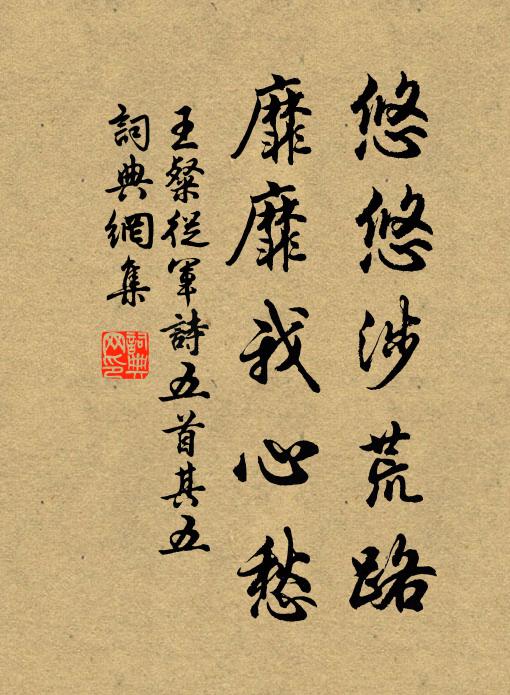 悠悠涉荒路
靡靡我心愁
王粲從軍詩五首其五
詞典網集
詞典網印